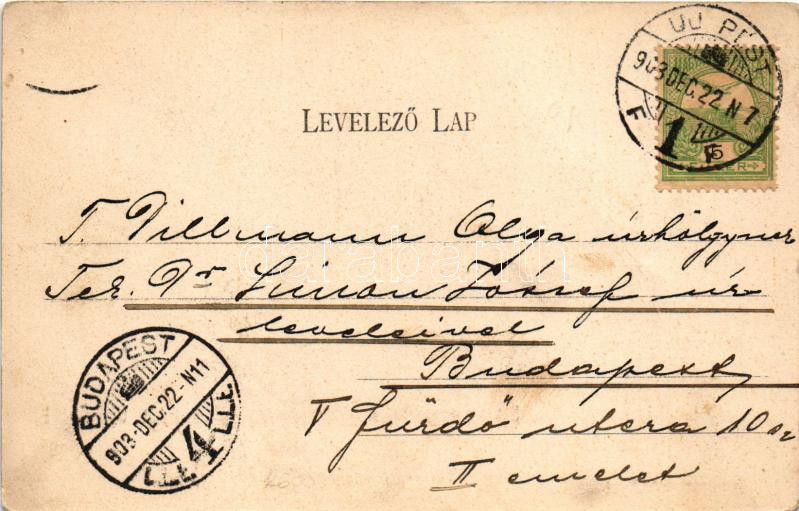 UJ PEST
903 DEC. 22. N 7
F 1 F
5
LEVELEZŐ LAP
T. Dillmann Olga úrhölgynek
Ter. Dr. Simon József úr
leveleivel
Budapest
V Fürdő utcza 10 sz
II emelet
BUDAPEST
903 DEC. 22. N11
4
darabanth